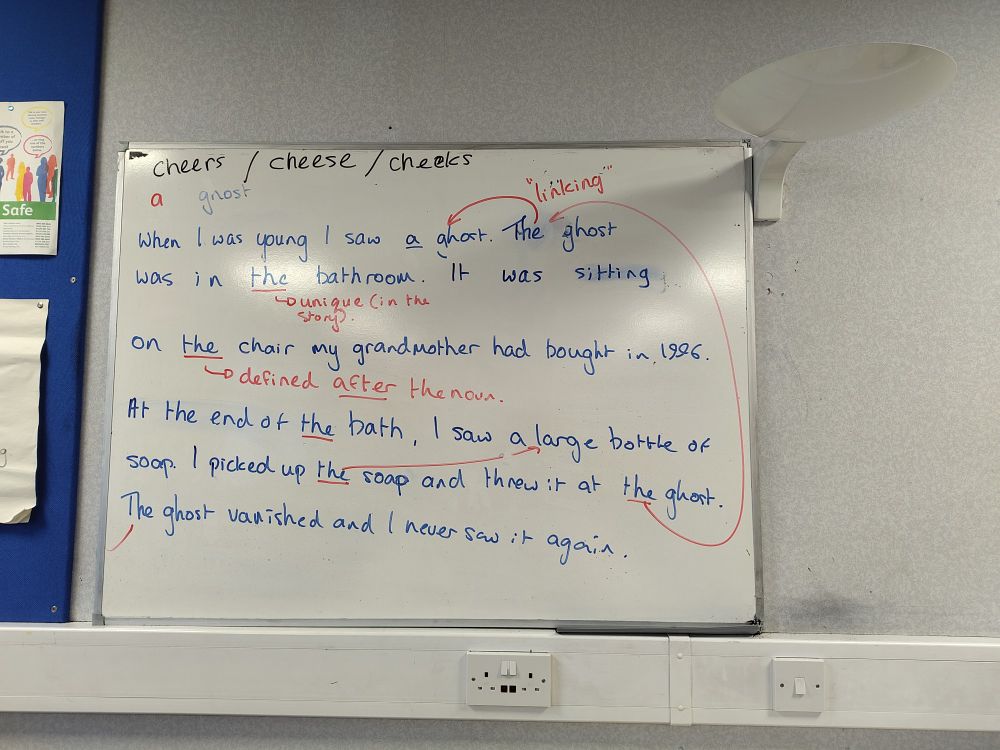 cheers / cheese / cheeks
a ghost
"linking"
When I was young I saw a ghost. The ghost
was in the bathroom. It was sitting
unique (in the
story).
on the chair my grandmother had bought in 1926.
defined after the noun.
At the end of the bath, I saw a large bottle of
soap. I picked up the soap and threw it at the ghost.
The ghost vanished and I never saw it again.
Safe
g